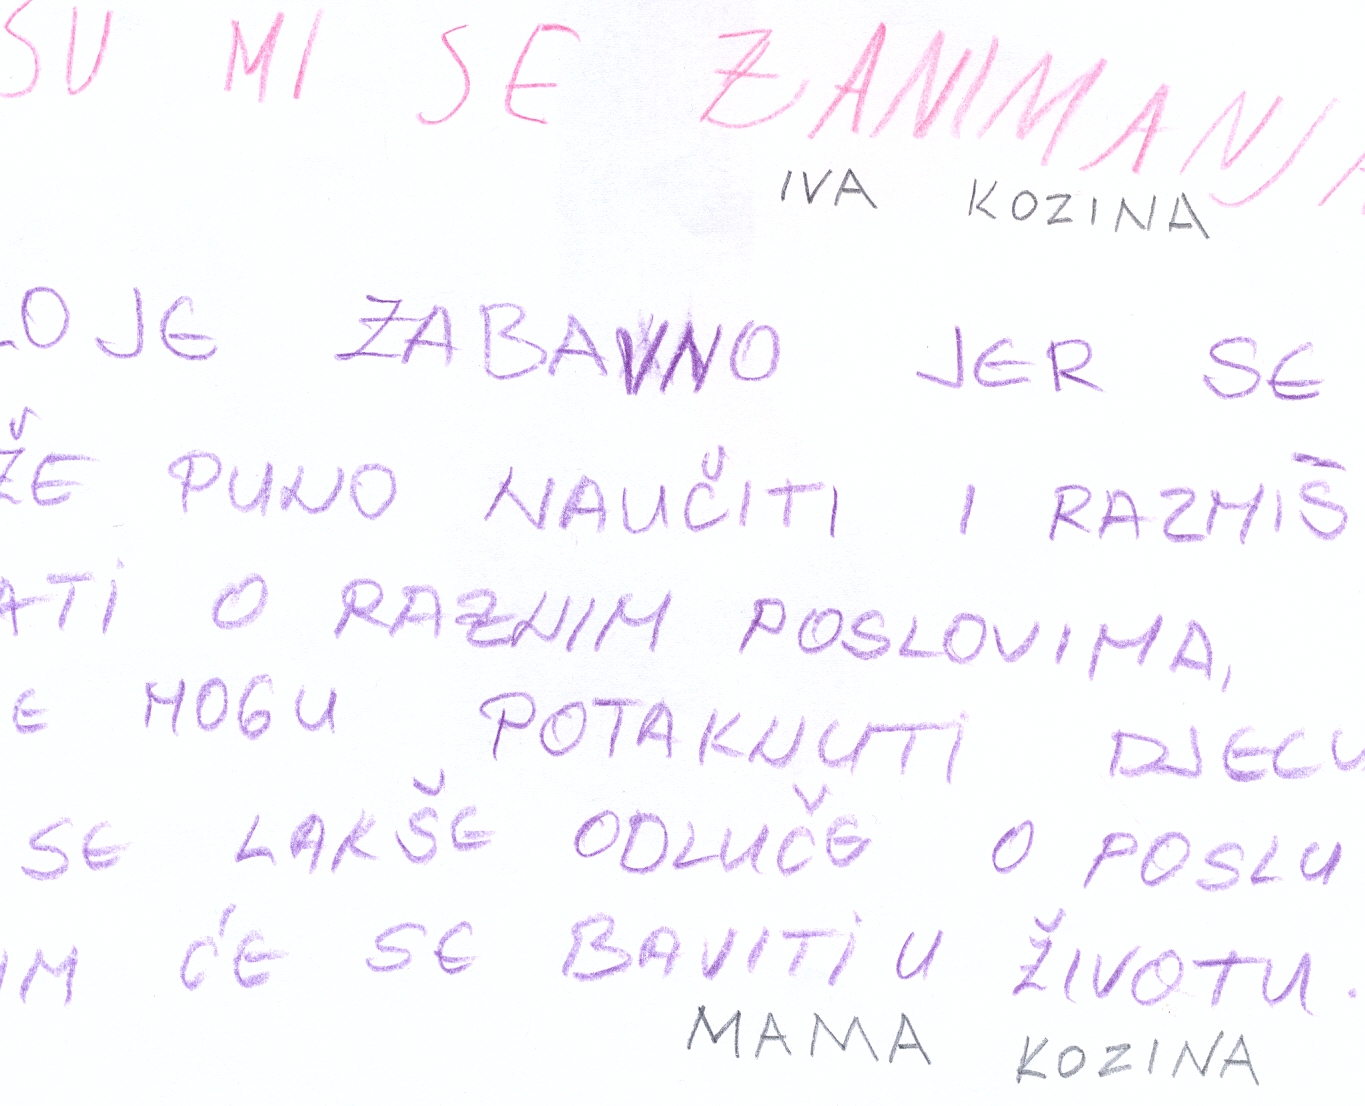 SU MI SE ZANIMANJA
IVA KOZINA
LO JE ZABAVNO JER SE
ŽE PUNO NAUČITI I RAZMIŠ
ATI O RAZNIM POSLOVIMA,
E MOGU POTAKNUTI DJECU
SE LAKŠE ODLUČE O POSLU
IM ĆE SE BAVITI U ŽIVOTU.
MAMA KOZINA